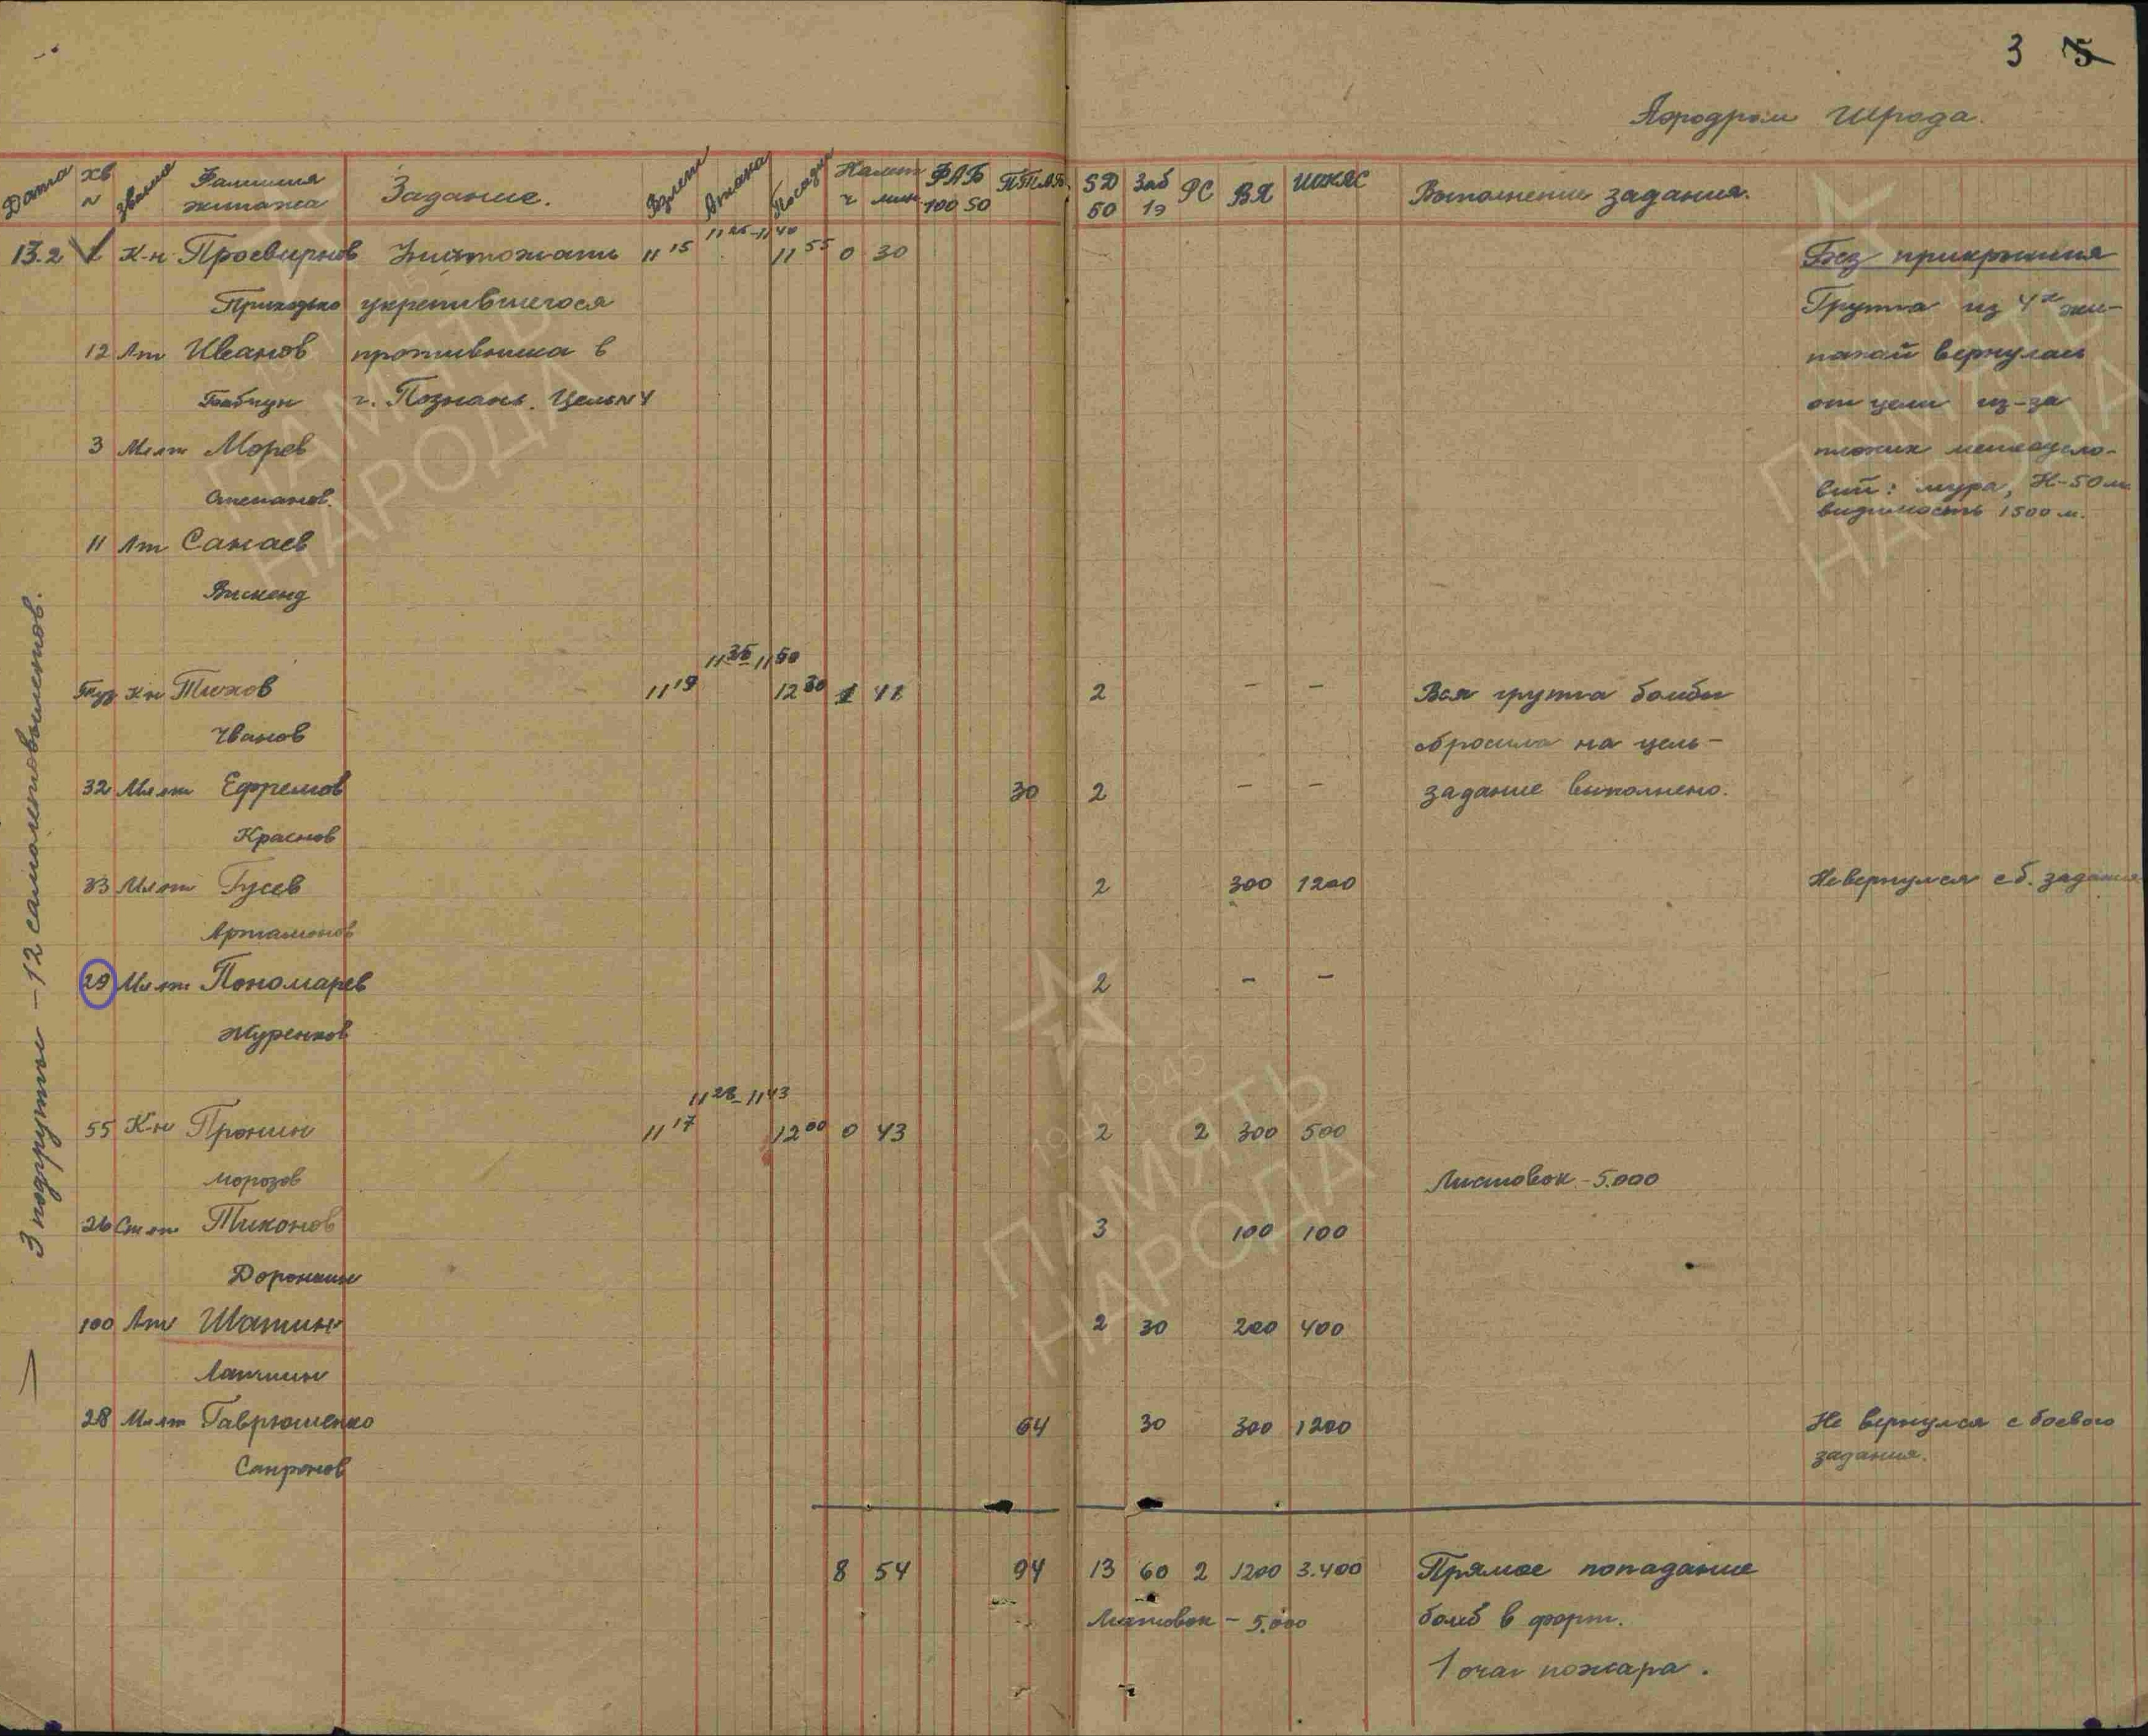 3 5
Аэродром Шрода.
Дата хв № Звание Фамилия экипажа Задание. Взлет Атака Посадка Налет ч мин ФАБ 100 50 ПТАБ SD 50 Заб 1э РС ВЯ ШКАС Выполнение задания.
11 25 – 11 40
13.2 1 К-н Просвирнов Уничтожать 11 15 11 55 0 30 Без прикрытия
Приходько укрепившегося Группа из 4х эки-
12 Лт Иванов противника в пажей вернулась
г. Познань. Цель №4 от цели из-за
3 Мл лт Морев плохих метеоусло-
Степанов. вий: мура, Н-50 м.
видимость 1500 м.
11 Лт Санаев
11 35 – 11 50
К-н Тихов 11 19 12 30 1 41 2 – – Вся группа бомбы
Чванов сбросила на цель –
32 Мл лт Ефремов 30 2 – – задание выполнено.
Краснов
33 Мл лт Гусев 2 300 1200 Не вернулся с б. задания
Артамонов
29 Мл лт Пономарев 2 – –
Журенков
11 28 – 11 43
55 К-н Пронин 11 17 12 00 0 43 2 2 300 500
Морозов Листовок – 5.000
26 Ст лт Тихонов 3 100 100
Доронкин
100 Лт Шатин 2 30 200 400
Лапшин
28 Мл лт Гаврюшенко 64 30 300 1200 Не вернулся с боевого
Сапронов задания.
8 54 94 13 60 2 1200 3.400 Прямое попадание
Листовок – 5.000 бомб в форт.
1 очаг пожара.
3 подгруппы – 12 самолетовылетов.
ПАМЯТЬ
НАРОДА
1941-1945
ПАМЯТЬ
НАРОДА
ПАМЯТЬ
НАРОДА